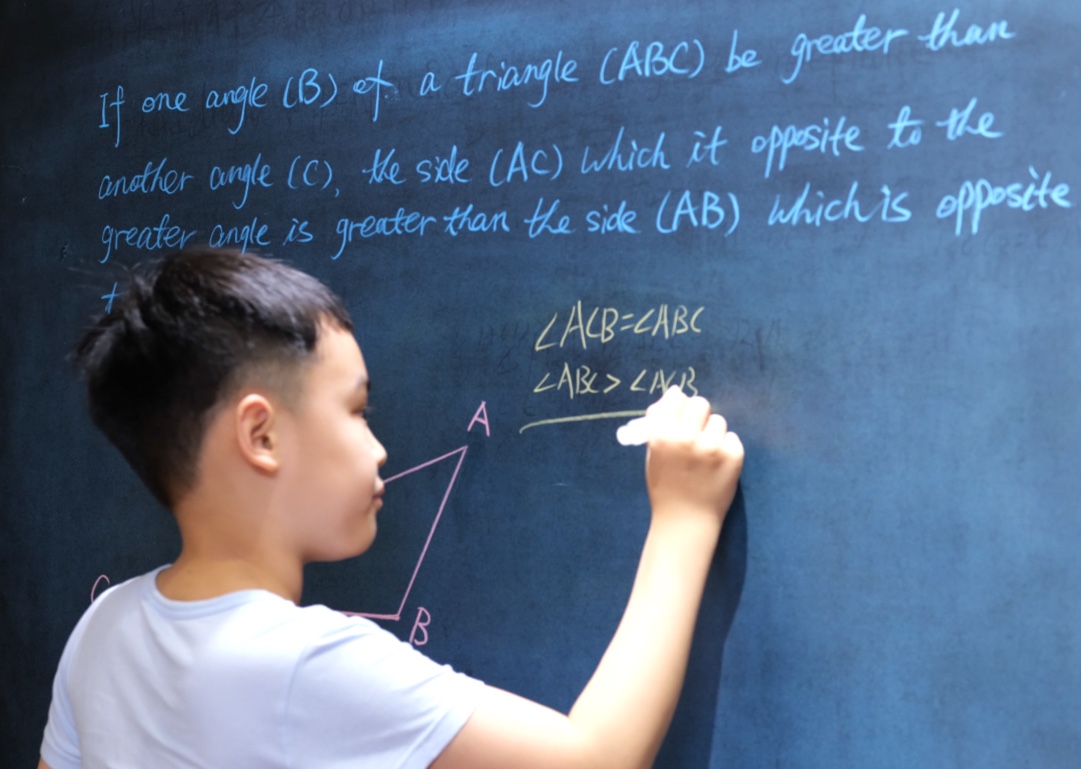 If one angle (B) of a triangle (ABC) be greater than
another angle (C), the side (AC) which it opposite to the
greater angle is greater than the side (AB) which is opposite
∠ACB=∠ABC
∠ABC>∠ACB
A
C
B